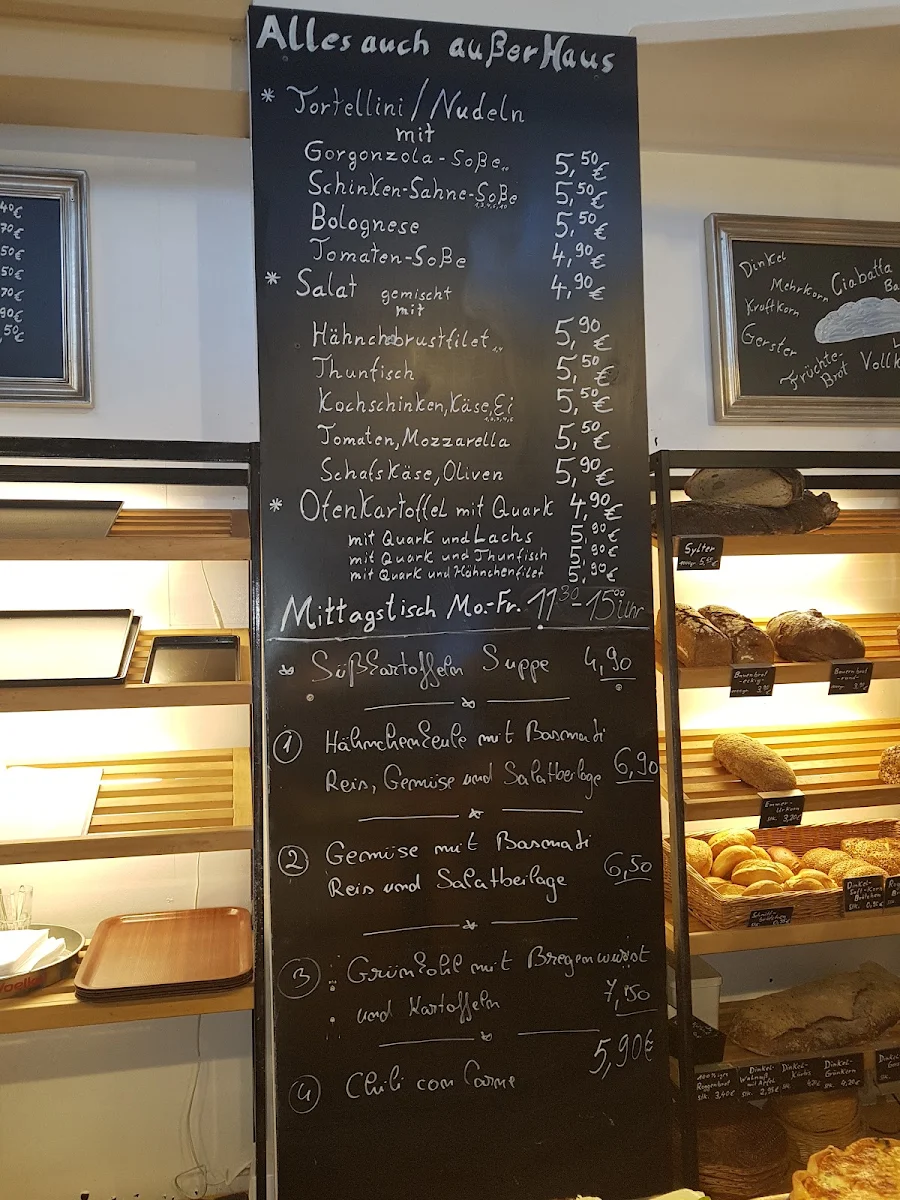 Alles auch außer Haus
* Tortellini/Nudeln
mit
Gorgonzola-Soße 5,50€
Schinken-Sahne-Soße 5,50€
Bolognese 5,50€
Tomaten-Soße 4,90€
* Salat gemischt 4,90€
mit
Hähnchenbrustfilet 5,90€
Thunfisch 5,50€
Kochschinken, Käse, Ei 5,50€
Tomaten, Mozzarella 5,50€
Schafskäse, Oliven 5,90€
* Ofenkartoffel mit Quark 4,90€
mit Quark und Lachs 5,90€
mit Quark und Thunfisch 5,90€
mit Quark und Hähnchenfilet 5,90€
Mittagstisch Mo.-Fr. 11³⁰-15⁰⁰ Uhr
* Süßkartoffeln Suppe 4,90
1 Hähnchenkeule mit Basmati
Reis, Gemüse und Salatbeilage 6,90
2 Gemüse mit Basmati
Reis und Salatbeilage 6,50
3 Grünkohl mit Bregenwurst
und Kartoffeln 7,50
5,90€
4 Chili con Carne
40€
70€
50€
50€
70€
90€
,50€
Dinkel
Mehrkorn
Ciabatta
Kraftkorn
Gerster
Früchte-
Brot
Sylter
5,40€
Bauernbrot
-eckig-
3,90
Bauernbrot
-rund-
3,90
Emmer-
Urkorn
Stk. 3,20€
Dinkel-
Saft-Korn
Brötchen
Stk. 0,95€
Roggenbrot
Stk. 3,40€
Dinkel-
Walnuß
mit Apfel
Stk. 2,95€
Dinkel-
Kürbis
Stk.
Dinkel-
Grünkern
Stk. 4,20€